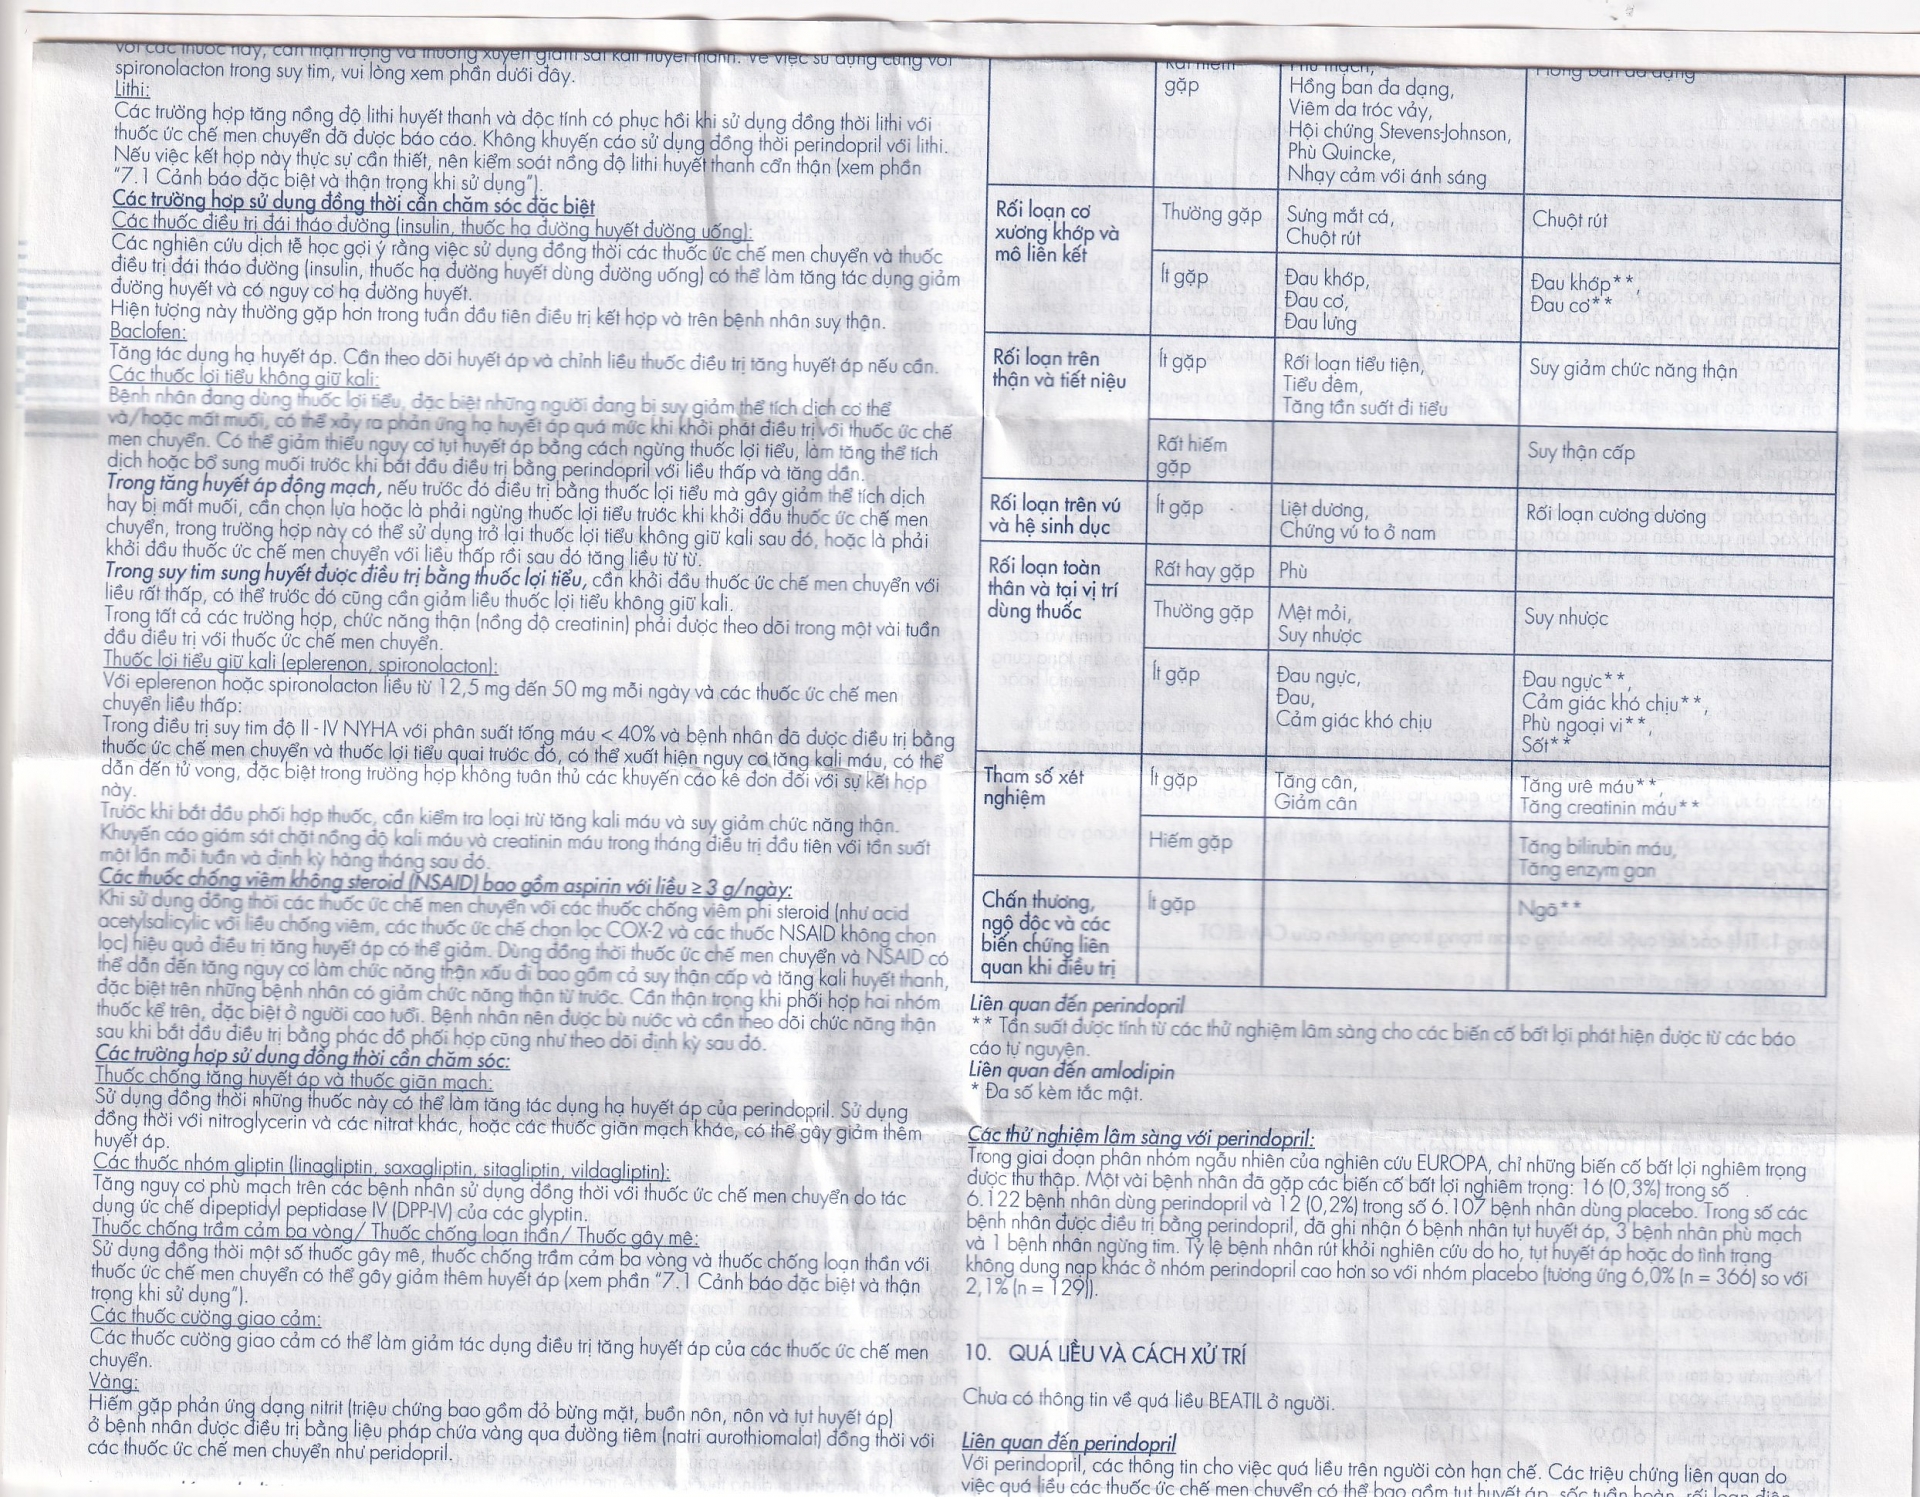 với các thuốc này, cần thận trọng và thường xuyên giám sát kali huyết thanh. Về việc sử dụng cùng với
spironolacton trong suy tim, vui lòng xem phần dưới đây.
Lithi:
Các trường hợp tăng nồng độ lithi huyết thanh và độc tính có phục hồi khi sử dụng đồng thời lithi với
thuốc ức chế men chuyển đã được báo cáo. Không khuyến cáo sử dụng đồng thời perindopril với lithi.
Nếu việc kết hợp này thực sự cần thiết, nên kiểm soát nồng độ lithi huyết thanh cẩn thận (xem phần
"7.1 Cảnh báo đặc biệt và thận trọng khi sử dụng").
Các trường hợp sử dụng đồng thời cần chăm sóc đặc biệt
Các thuốc điều trị đái tháo đường (insulin, thuốc hạ đường huyết đường uống):
Các nghiên cứu dịch tễ học gợi ý rằng việc sử dụng đồng thời các thuốc ức chế men chuyển và thuốc
điều trị đái tháo đường (insulin, thuốc hạ đường huyết dùng đường uống) có thể làm tăng tác dụng giảm
đường huyết và có nguy cơ hạ đường huyết.
Hiện tượng này thường gặp hơn trong tuần đầu tiên điều trị kết hợp và trên bệnh nhân suy thận.
Baclofen:
Tăng tác dụng hạ huyết áp. Cần theo dõi huyết áp và chỉnh liều thuốc điều trị tăng huyết áp nếu cần.
Các thuốc lợi tiểu không giữ kali:
Bệnh nhân đang dùng thuốc lợi tiểu, đặc biệt những người đang bị suy giảm thể tích dịch cơ thể
và/hoặc mất muối, có thể xảy ra phản ứng hạ huyết áp quá mức khi khởi phát điều trị với thuốc ức chế
men chuyển. Có thể giảm thiểu nguy cơ tụt huyết áp bằng cách ngừng thuốc lợi tiểu, làm tăng thể tích
dịch hoặc bổ sung muối trước khi bắt đầu điều trị bằng perindopril với liều thấp và tăng dần.
Trong tăng huyết áp động mạch, nếu trước đó điều trị bằng thuốc lợi tiểu mà gây giảm thể tích dịch
hay bị mất muối, cần chọn lựa hoặc là phải ngừng thuốc lợi tiểu trước khi khởi đầu thuốc ức chế men
chuyển, trong trường hợp này có thể sử dụng trở lại thuốc lợi tiểu không giữ kali sau đó, hoặc là phải
khởi đầu thuốc ức chế men chuyển với liều thấp rồi sau đó tăng liều từ từ.
Trong suy tim sung huyết được điều trị bằng thuốc lợi tiểu, cần khởi đầu thuốc ức chế men chuyển với
liều rất thấp, có thể trước đó cũng cần giảm liều thuốc lợi tiểu không giữ kali.
Trong tất cả các trường hợp, chức năng thận (nồng độ creatinin) phải được theo dõi trong một vài tuần
đầu điều trị với thuốc ức chế men chuyển.
Thuốc lợi tiểu giữ kali (eplerenon, spironolacton):
Với eplerenon hoặc spironolacton liều từ 12,5 mg đến 50 mg mỗi ngày và các thuốc ức chế men
chuyển liều thấp:
Trong điều trị suy tim độ II - IV NYHA với phân suất tống máu < 40% và bệnh nhân đã được điều trị bằng
thuốc ức chế men chuyển và thuốc lợi tiểu quai trước đó, có thể xuất hiện nguy cơ tăng kali máu, có thể
dẫn đến tử vong, đặc biệt trong trường hợp không tuân thủ các khuyến cáo kê đơn đối với sự kết hợp
này.
Trước khi bắt đầu phối hợp thuốc, cần kiểm tra loại trừ tăng kali máu và suy giảm chức năng thận.
Khuyến cáo giám sát chặt nồng độ kali máu và creatinin máu trong tháng điều trị đầu tiên với tần suất
một lần mỗi tuần và định kỳ hàng tháng sau đó.
Các thuốc chống viêm không steroid (NSAID) bao gồm aspirin với liều ≥ 3 g/ngày:
Khi sử dụng đồng thời các thuốc ức chế men chuyển với các thuốc chống viêm phi steroid (như acid
acetylsalicylic với liều chống viêm, các thuốc ức chế chọn lọc COX-2 và các thuốc NSAID không chọn
lọc) hiệu quả điều trị tăng huyết áp có thể giảm. Dùng đồng thời thuốc ức chế men chuyển và NSAID có
thể dẫn đến tăng nguy cơ làm chức năng thận xấu đi bao gồm cả suy thận cấp và tăng kali huyết thanh,
đặc biệt trên những bệnh nhân có giảm chức năng thận từ trước. Cần thận trọng khi phối hợp hai nhóm
thuốc kể trên, đặc biệt ở người cao tuổi. Bệnh nhân nên được bù nước và cần theo dõi chức năng thận
sau khi bắt đầu điều trị bằng phác đồ phối hợp cũng như theo dõi định kỳ sau đó.
Các trường hợp sử dụng đồng thời cần chăm sóc:
Thuốc chống tăng huyết áp và thuốc giãn mạch:
Sử dụng đồng thời những thuốc này có thể làm tăng tác dụng hạ huyết áp của perindopril. Sử dụng
đồng thời với nitroglycerin và các nitrat khác, hoặc các thuốc giãn mạch khác, có thể gây giảm thêm
huyết áp.
Các thuốc nhóm gliptin (linagliptin, saxagliptin, sitagliptin, vildagliptin):
Tăng nguy cơ phù mạch trên các bệnh nhân sử dụng đồng thời với thuốc ức chế men chuyển do tác
dụng ức chế dipeptidyl peptidase IV (DPP-IV) của các glyptin.
Thuốc chống trầm cảm ba vòng/ Thuốc chống loạn thần/ Thuốc gây mê:
Sử dụng đồng thời một số thuốc gây mê, thuốc chống trầm cảm ba vòng và thuốc chống loạn thần với
thuốc ức chế men chuyển có thể gây giảm thêm huyết áp (xem phần "7.1 Cảnh báo đặc biệt và thận
trọng khi sử dụng").
Các thuốc cường giao cảm:
Các thuốc cường giao cảm có thể làm giảm tác dụng điều trị tăng huyết áp của các thuốc ức chế men
chuyển.
Vàng:
Hiếm gặp phản ứng dạng nitrit (triệu chứng bao gồm đỏ bừng mặt, buồn nôn, nôn và tụt huyết áp)
ở bệnh nhân được điều trị bằng liệu pháp chứa vàng qua đường tiêm (natri aurothiomalat) đồng thời với
các thuốc ức chế men chuyển như peridopril.
Rất hiếm Phù mạch, Hồng ban đa dạng
gặp Hồng ban đa dạng,
Viêm da tróc vảy,
Hội chứng Stevens-Johnson,
Phù Quincke,
Nhạy cảm với ánh sáng
Rối loạn cơ Thường gặp Sưng mắt cá, Chuột rút
xương khớp và Chuột rút
mô liên kết Ít gặp Đau khớp, Đau khớp**,
Đau cơ, Đau cơ**
Đau lưng
Rối loạn trên Ít gặp Rối loạn tiểu tiện, Suy giảm chức năng thận
thận và tiết niệu Tiểu đêm,
Tăng tần suất đi tiểu
Rất hiếm Suy thận cấp
gặp
Rối loạn trên vú Ít gặp Liệt dương, Rối loạn cương dương
và hệ sinh dục Chứng vú to ở nam
Rối loạn toàn Rất hay gặp Phù
thân và tại vị trí
dùng thuốc Thường gặp Mệt mỏi, Suy nhược
Suy nhược
Ít gặp Đau ngực, Đau ngực**,
Đau, Cảm giác khó chịu**,
Cảm giác khó chịu Phù ngoại vi**,
Sốt**
Tham số xét Ít gặp Tăng cân, Tăng urê máu**,
nghiệm Giảm cân Tăng creatinin máu**
Hiếm gặp Tăng bilirubin máu,
Tăng enzym gan
Chấn thương, Ít gặp Ngã**
ngộ độc và các
biến chứng liên
quan khi điều trị
Liên quan đến perindopril
** Tần suất được tính từ các thử nghiệm lâm sàng cho các biến cố bất lợi phát hiện được từ các báo
cáo tự nguyện.
Liên quan đến amlodipin
* Đa số kèm tắc mật.
Các thử nghiệm lâm sàng với perindopril:
Trong giai đoạn phân nhóm ngẫu nhiên của nghiên cứu EUROPA, chỉ những biến cố bất lợi nghiêm trọng
được thu thập. Một vài bệnh nhân đã gặp các biến cố bất lợi nghiêm trọng: 16 (0,3%) trong số
6.122 bệnh nhân dùng perindopril và 12 (0,2%) trong số 6.107 bệnh nhân dùng placebo. Trong số các
bệnh nhân được điều trị bằng perindopril, đã ghi nhận 6 bệnh nhân tụt huyết áp, 3 bệnh nhân phù mạch
và 1 bệnh nhân ngừng tim. Tỷ lệ bệnh nhân rút khỏi nghiên cứu do ho, tụt huyết áp hoặc do tình trạng
không dung nạp khác ở nhóm perindopril cao hơn so với nhóm placebo (tương ứng 6,0% (n = 366) so với
2,1% (n = 129)).
10. QUÁ LIỀU VÀ CÁCH XỬ TRÍ
Chưa có thông tin về quá liều BEATIL ở người.
Liên quan đến perindopril
Với perindopril, các thông tin cho việc quá liều trên người còn hạn chế. Các triệu chứng liên quan do
việc quá liều các thuốc ức chế men chuyển có thể bao gồm tụt huyết áp, sốc tuần hoàn, rối loạn điện